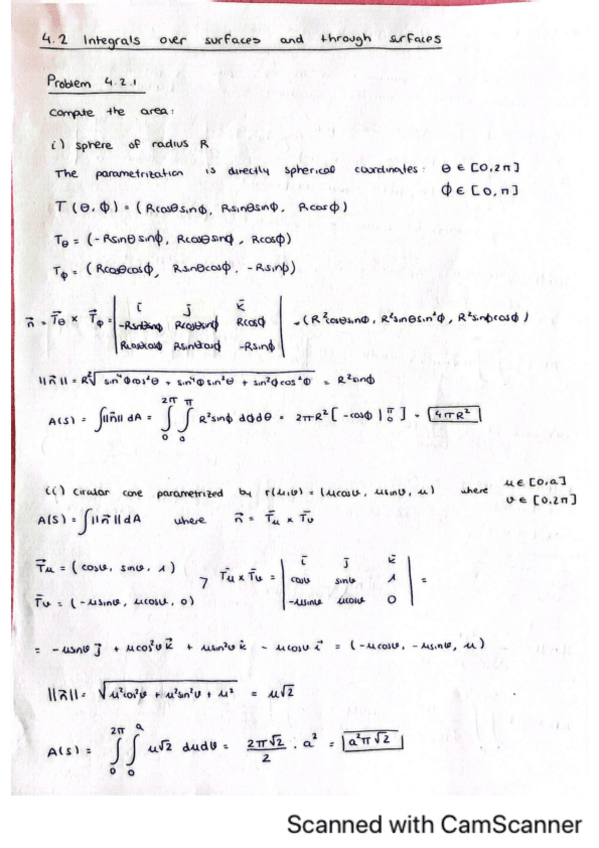 4.2 Integrals over surfaces and through surfaces
Problem 4.2.1
Compute the area:
i) sphere of radius R
The parametrization is directly spherical coordinates: θ ∈ [0,2π]
ϕ ∈ [0,π]
T(θ,ϕ) = (Rcosθsinϕ, Rsinθsinϕ, Rcosϕ)
Tθ = (-Rsinθsinϕ, Rcosθsinϕ, Rcosϕ)
Tϕ = (Rcosθcosϕ, Rsinθcosϕ, -Rsinϕ)
n⃗ = T⃗θ × T⃗ϕ = | i j k |
| -Rsinθsinϕ Rcosθsinϕ Rcosϕ | = (R²cosθsinϕ, R²sinθsin²ϕ, R²sinϕcosϕ)
| Rcosθcosϕ Rsinθcosϕ -Rsinϕ |
||n⃗|| = R²√(sin⁴ϕcos²θ + sin⁴ϕsin²θ + sin²ϕcos²ϕ) = R²sinϕ
A(S) = ∫||n⃗|| dA = ∫₀^2π ∫₀^π R²sinϕ dϕdθ = 2πR² [-cosϕ |₀^π] = 4πR²
ii) circular cone parametrized by r(u,v) = (ucosv, usinv, u) where u ∈ [0,a]
v ∈ [0,2π]
A(S) = ∫||n⃗|| dA where n⃗ = T⃗u × T⃗v
T⃗u = (cosv, sinv, 1)
T⃗v = (-usinv, ucosv, 0)
T⃗u × T⃗v = | i j k |
| cosv sinv 1 | =
| -usinv ucosv 0 |
= -usinv j⃗ + ucos²v k⃗ + usin²v k⃗ - ucosv i⃗ = (-ucosv, -usinv, u)
||n⃗|| = √(u²cos²v + u²sin²v + u²) = u√2
A(S) = ∫₀^2π ∫₀^a u√2 dudv = 2π√2/2 · a² = a²π√2
Scanned with CamScanner